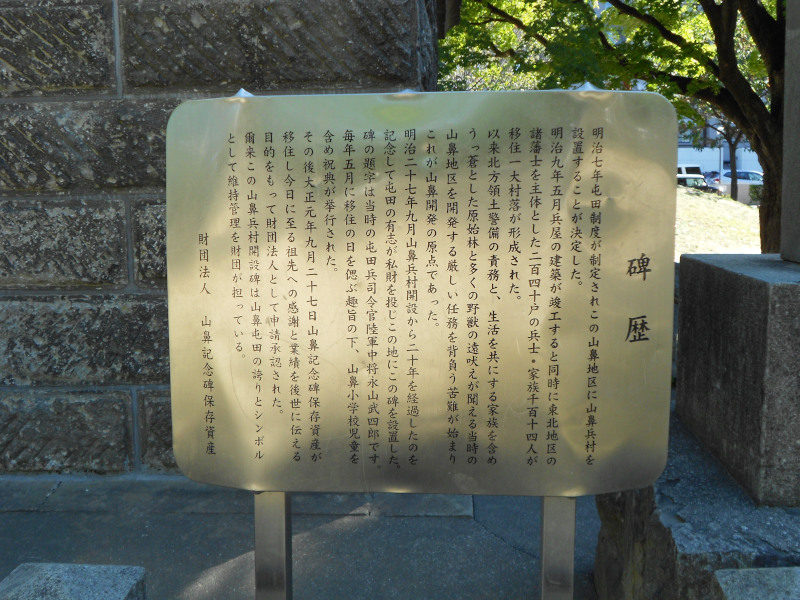 碑歴
明治七年屯田制度が制定されこの山鼻地区に山鼻兵村を
設置することが決定した。
明治九年五月兵屋の建築が竣工すると同時に東北地区の
諸藩士を主体とした二百四十戸の兵士・家族千百十四人が
移住一大村落が形成された。
以来北方領土警備の責務と、生活を共にする家族を含め
うっ蒼とした原始林と多くの野獣の遠吠えが聞える当時の
山鼻地区を開発する厳しい任務を背負う苦難が始まり
これが山鼻開発の原点であった。
明治二十七年九月山鼻兵村開設から二十年を経過したのを
記念して屯田の有志が私財を投じこの地にこの碑を設置した。
碑の題字は当時の屯田兵司令官陸軍中将永山武四郎です。
毎年五月に移住の日を偲ぶ趣旨の下、山鼻小学校児童を
含め祝典が挙行された。
その後大正元年九月二十七日山鼻記念碑保存資産が
移住し今日に至る祖先への感謝と業績を後世に伝える
目的をもって財団法人として申請承認された。
爾来この山鼻兵村開設碑は山鼻屯田の誇りとシンボル
として維持管理を財団が担っている。
財団法人 山鼻記念碑保存資産